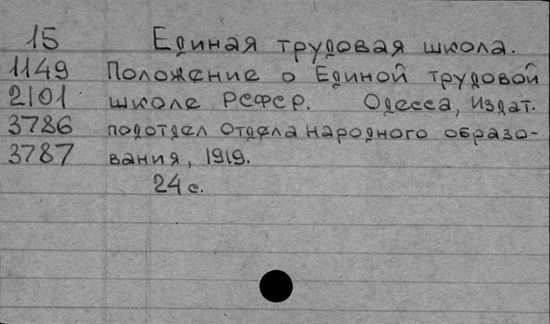 15 Единая трудовая школа.
1149 Положение о Единой трудовой
2101 школе РСФСР. Одесса, Издат.
3786 подотдел Отдела народного образо-
3787 вания, 1919.
24 с.